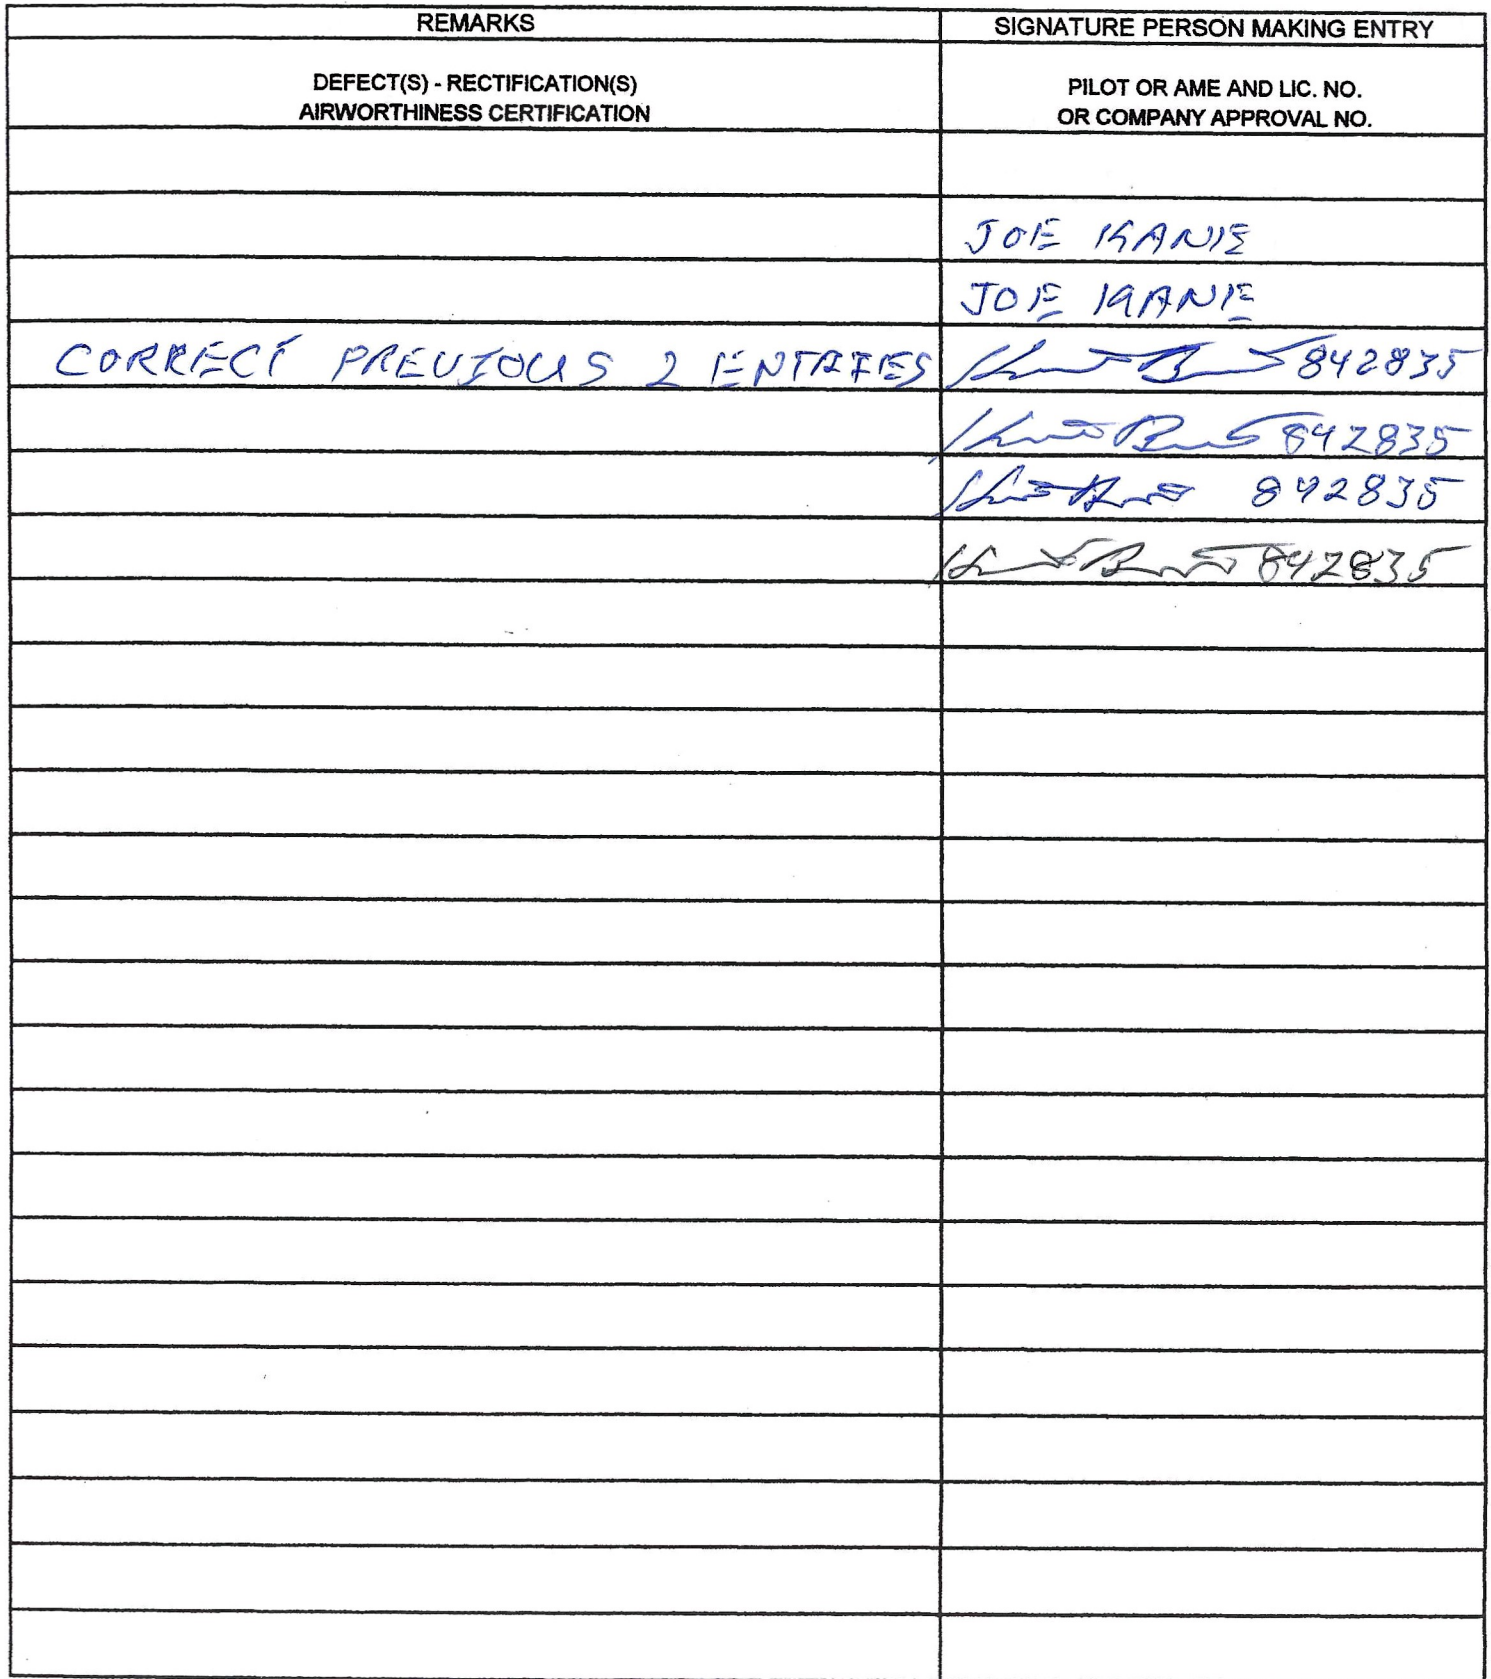 REMARKS
SIGNATURE PERSON MAKING ENTRY
DEFECT(S) - RECTIFICATION(S)
AIRWORTHINESS CERTIFICATION
PILOT OR AME AND LIC. NO.
OR COMPANY APPROVAL NO.
JOE KANE
JOE KANE
CORRECT PREVIOUS 2 ENTRIES 842835
842835
842835
842835